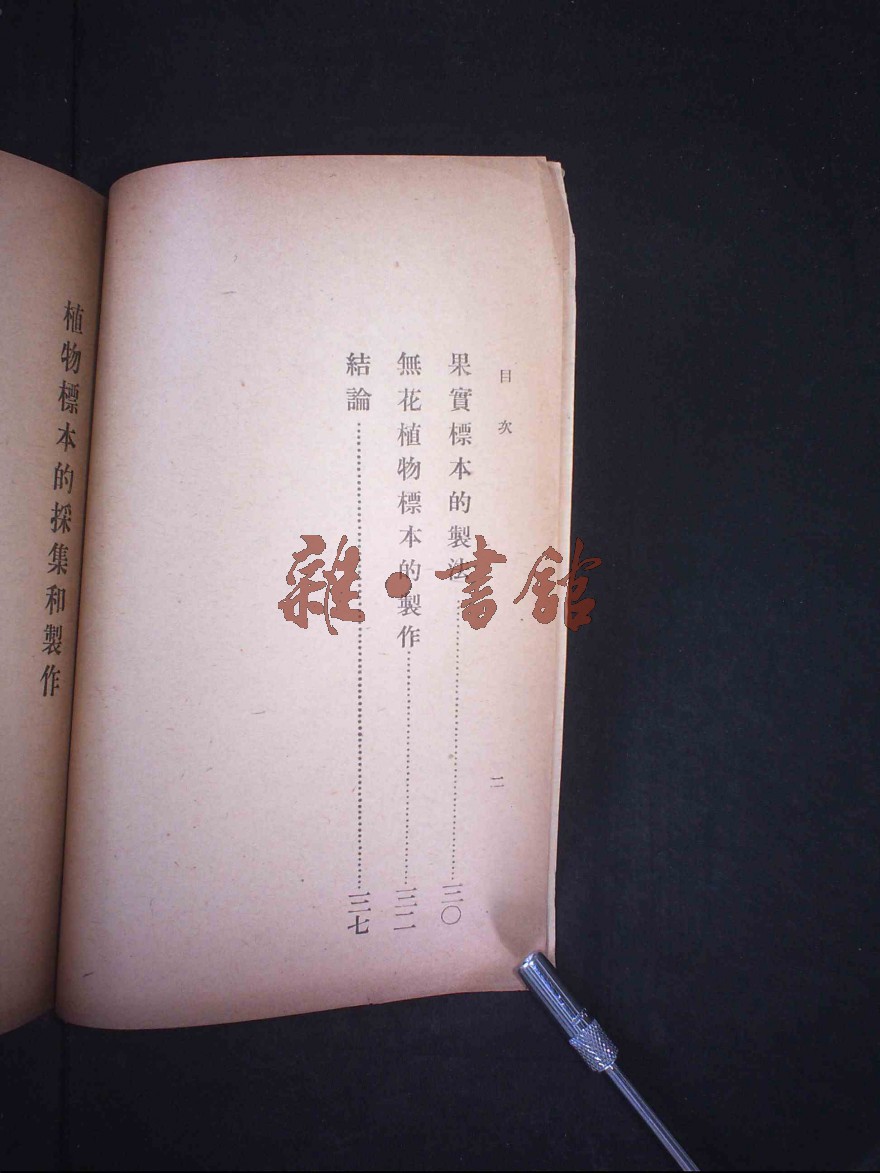 目次
果實標本的製法…………三〇
無花植物標本的製作…………三二
結論…………三七
二
植物標本的採集和製作
雜·書館